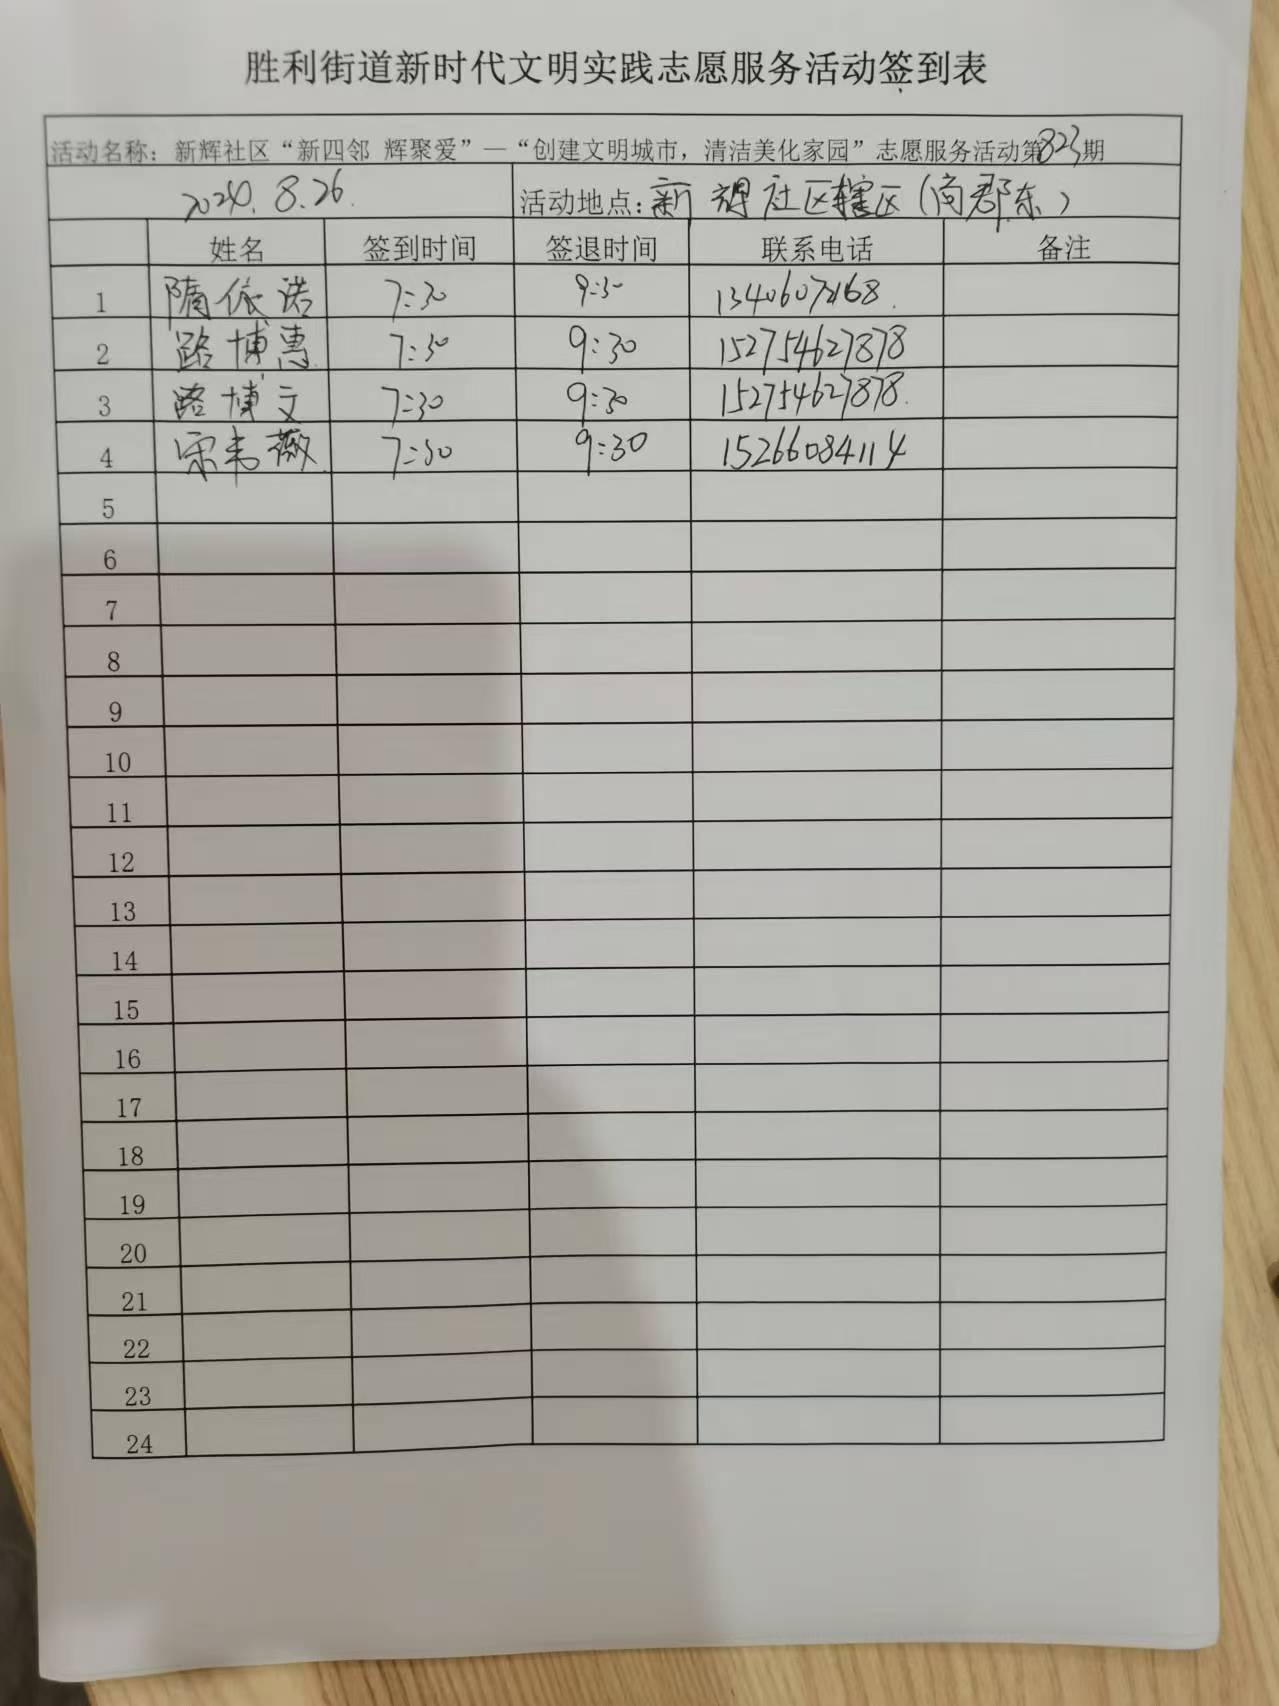 胜利街道新时代文明实践志愿服务活动签到表
活动名称：新辉社区“新四邻 辉聚爱”—“创建文明城市，清洁美化家园”志愿服务活动第823期
8.26. 活动地点：新辉社区辖区（尚郡东）
姓名 签到时间 签退时间 联系电话 备注
1 隋依诺 7:30 9:30
2 路博惠 7:30 9:30 152754627878
3 路博文 7:30 9:30 152754627878.
4 宋韦薇 7:30 9:30 15266084114
5
6
7
8
9
10
11
12
13
14
15
16
17
18
19
20
21
22
23
24